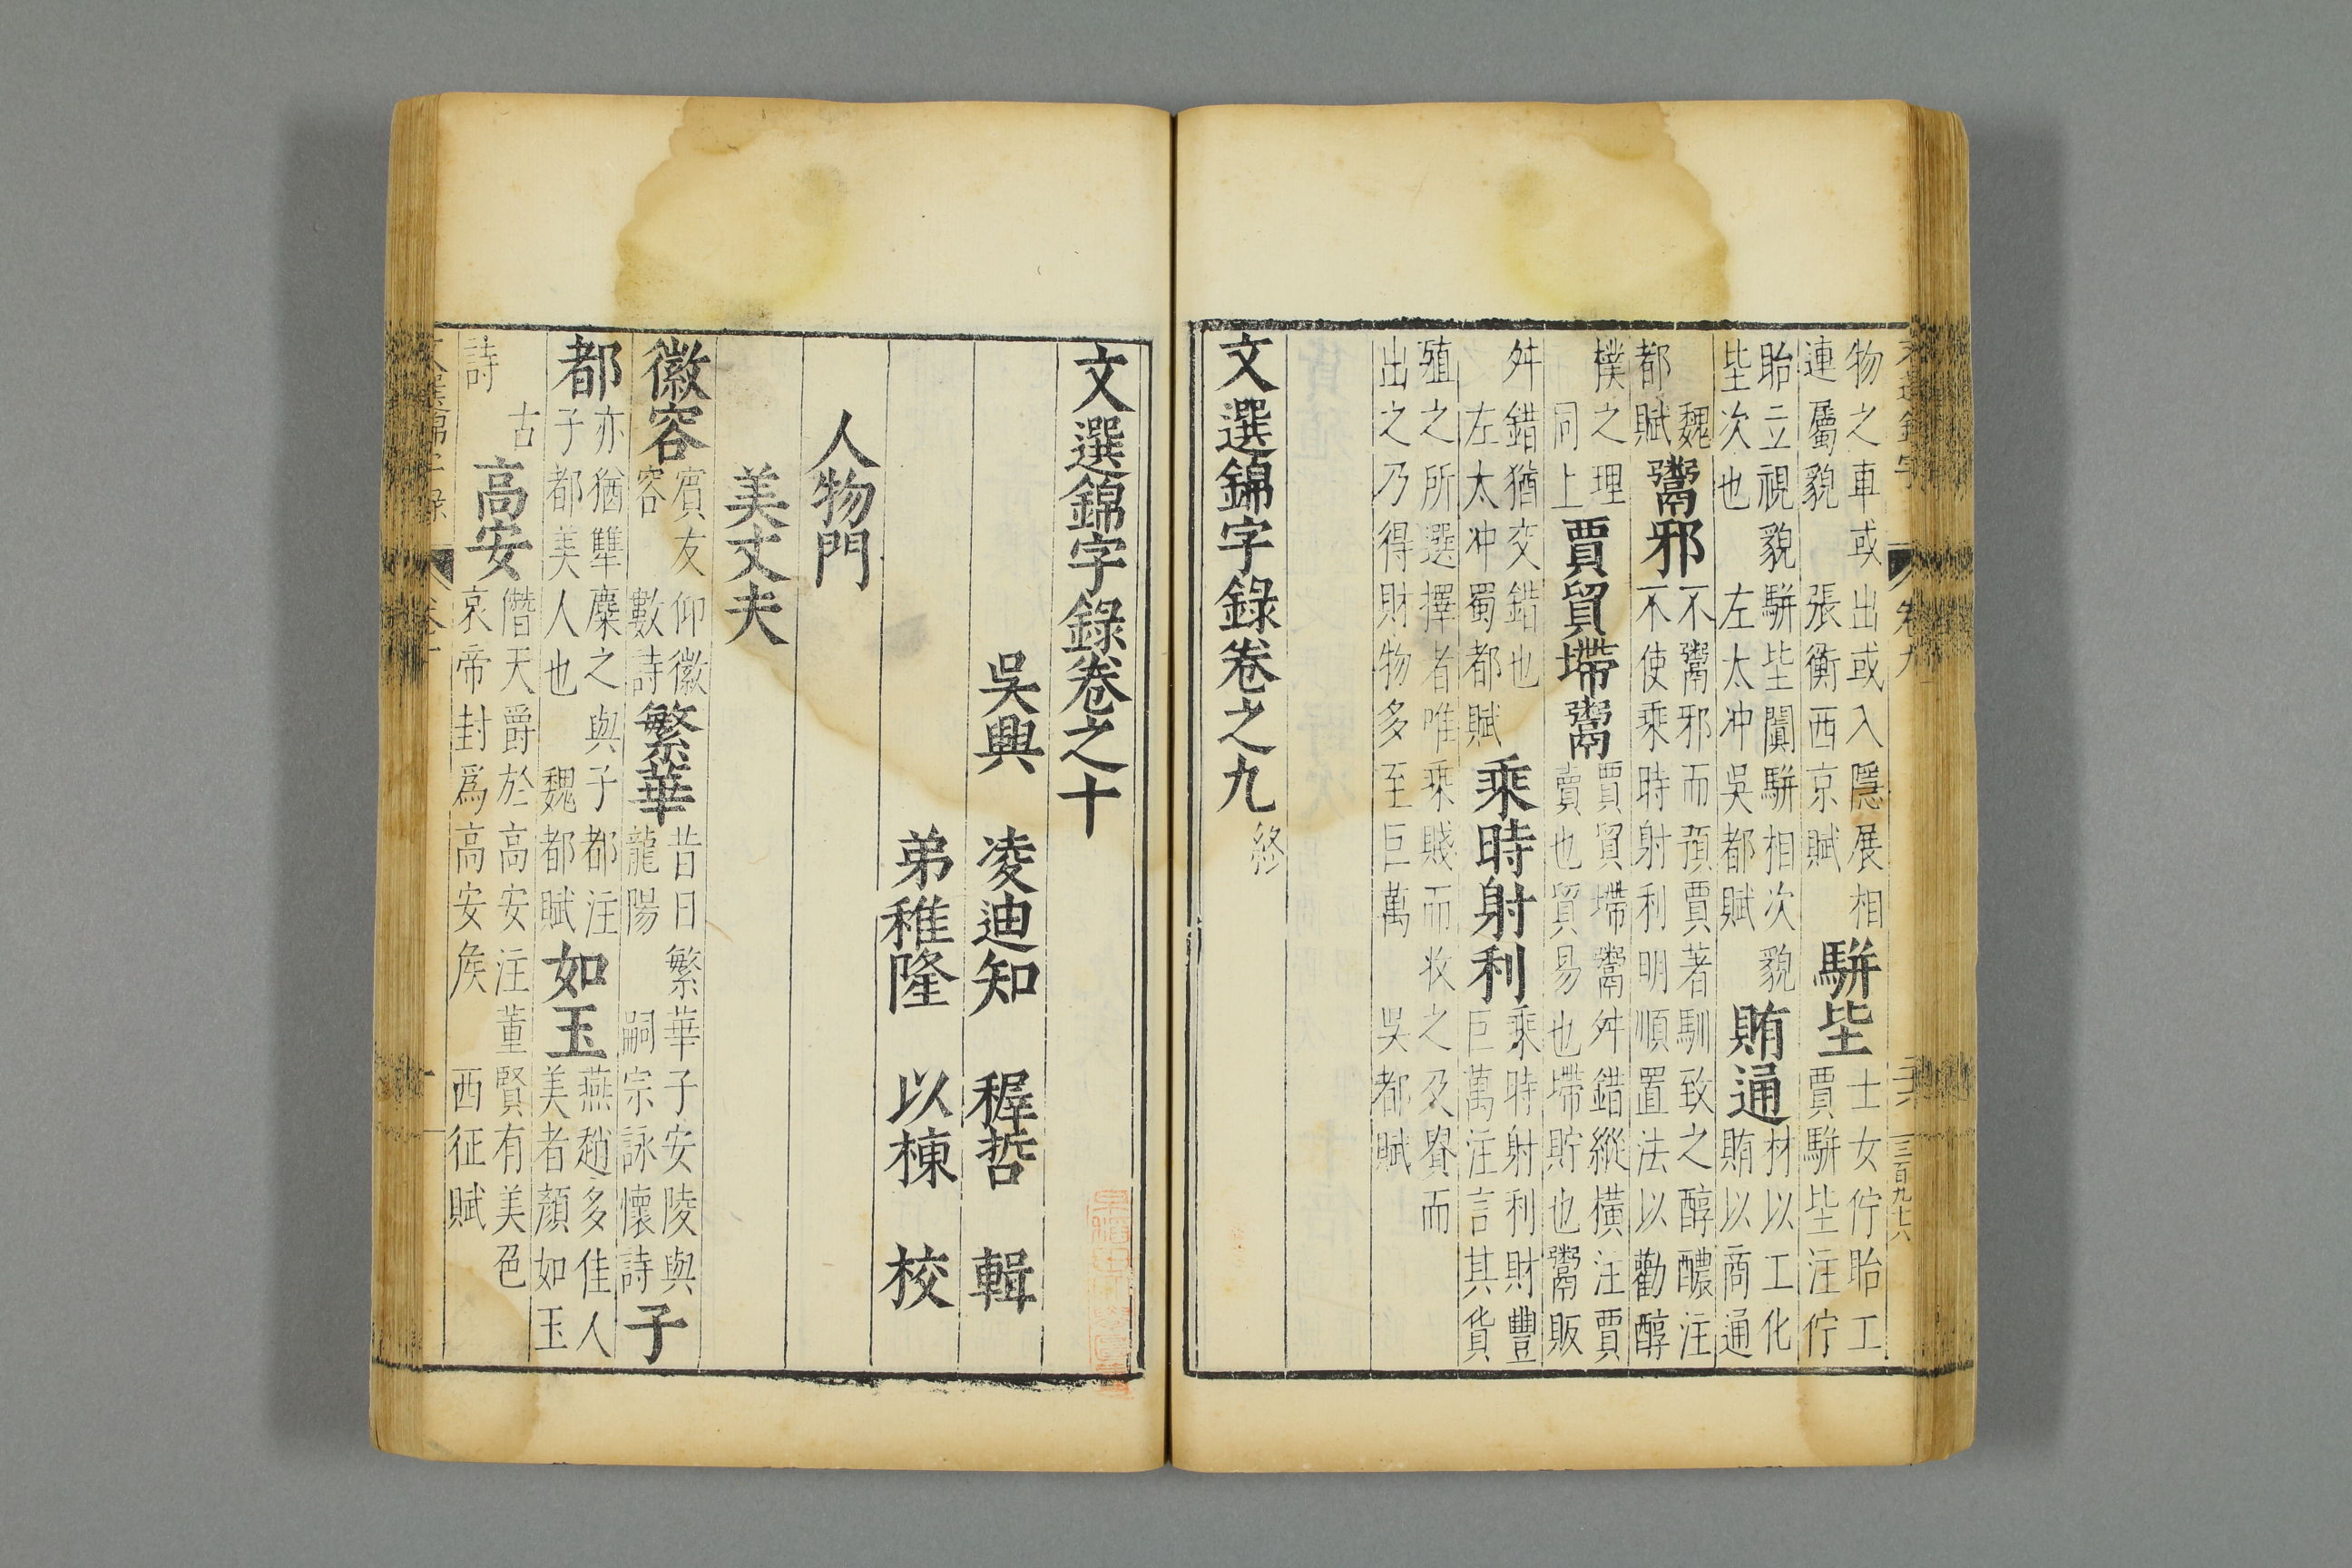 文選錦字
卷九
三百九十六
物之車或出或入隱展相
連屬貌 張衡西京賦
駢坒
士女佇眙工
賈駢坒注佇
眙立視貌駢坒闐駢相次貌
坒次也 左太冲吳都賦
賄通
材以工化
賄以商通
魏
都賦
鬻邪
不鬻邪而預賈著馴致之醇醲注
不使乘時射利明順置法以勸醇
樸之理
同上
賈貿墆鬻
賈貿墆鬻舛錯縱橫注賈
賣也貿易也墆貯也鬻販
舛錯猶交錯也
左太冲蜀都賦
乘時射利
乘時射利財豐
巨萬注言其貨
殖之所選擇者唯乘賤而收之及賚而
出之乃得財物多至巨萬 吳都賦
文選錦字錄卷之九終
文選錦字錄卷之十
吳興 凌迪知 穉哲 輯
弟稚隆 以棟 校
人物門
美丈夫
徽容
賓友仰徽
容 數詩
繁華
昔日繁華子安陵與
龍陽 嗣宗詠懷詩
子
都
亦猶犨麋之與子都注
子都美人也 魏都賦
如玉
燕趙多佳人
美者顏如玉
古
詩
高安
僭天爵於高安注董賢有美色
哀帝封爲高安侯 西征賦